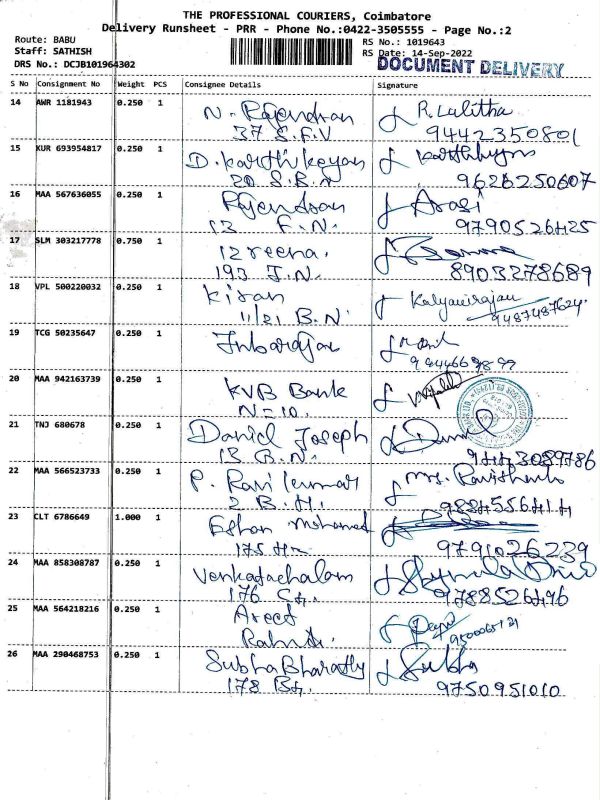 THE PROFESSIONAL COURIERS, Coimbatore
Delivery Runsheet - PRR - Phone No.:0422-3505555 - Page No.:2
Route: BABU
Staff: SATHISH
DRS No.: DCJB101964302
RS No.: 1019643
RS Date: 14-Sep-2022
DOCUMENT DELIVERY
S No Consignment No Weight PCS Consignee Details Signature
14 AWR 1181943 0.250 1 N. Rajendran R. Lalitha
37 S.F.V 9442350801
15 KUR 693954817 0.250 1 D. Karthikeyan
20 S.B.N 9626250607
16 MAA 567636055 0.250 1 Rajendran Arasi
13 F.N. 9790526425
17 SLM 303217778 0.750 1
193 J.N. 8903278689
18 VPL 500220032 0.250 1 Kiran Kalyanirajan
11/21 B.N. 9487487624
19 TCG 50235647 0.250 1 Inbarajan
20 MAA 942163739 0.250 1 KVB Bank
N=10.
21 TNJ 680678 0.250 1 Daniel Joseph
13 B.N. 9443089786
22 MAA 566523733 0.250 1 P. Ravikumar Mrs.
2 B.H.
23 CLT 6786649 1.000 1 Eshan Mohamed
175 9791026239
24 MAA 858308787 0.250 1 Venkatachalam
176 9788526496
25 MAA 564218216 0.250 1
26 MAA 290468753 0.250 1 Subha Bharathy Subha
178 9750951010